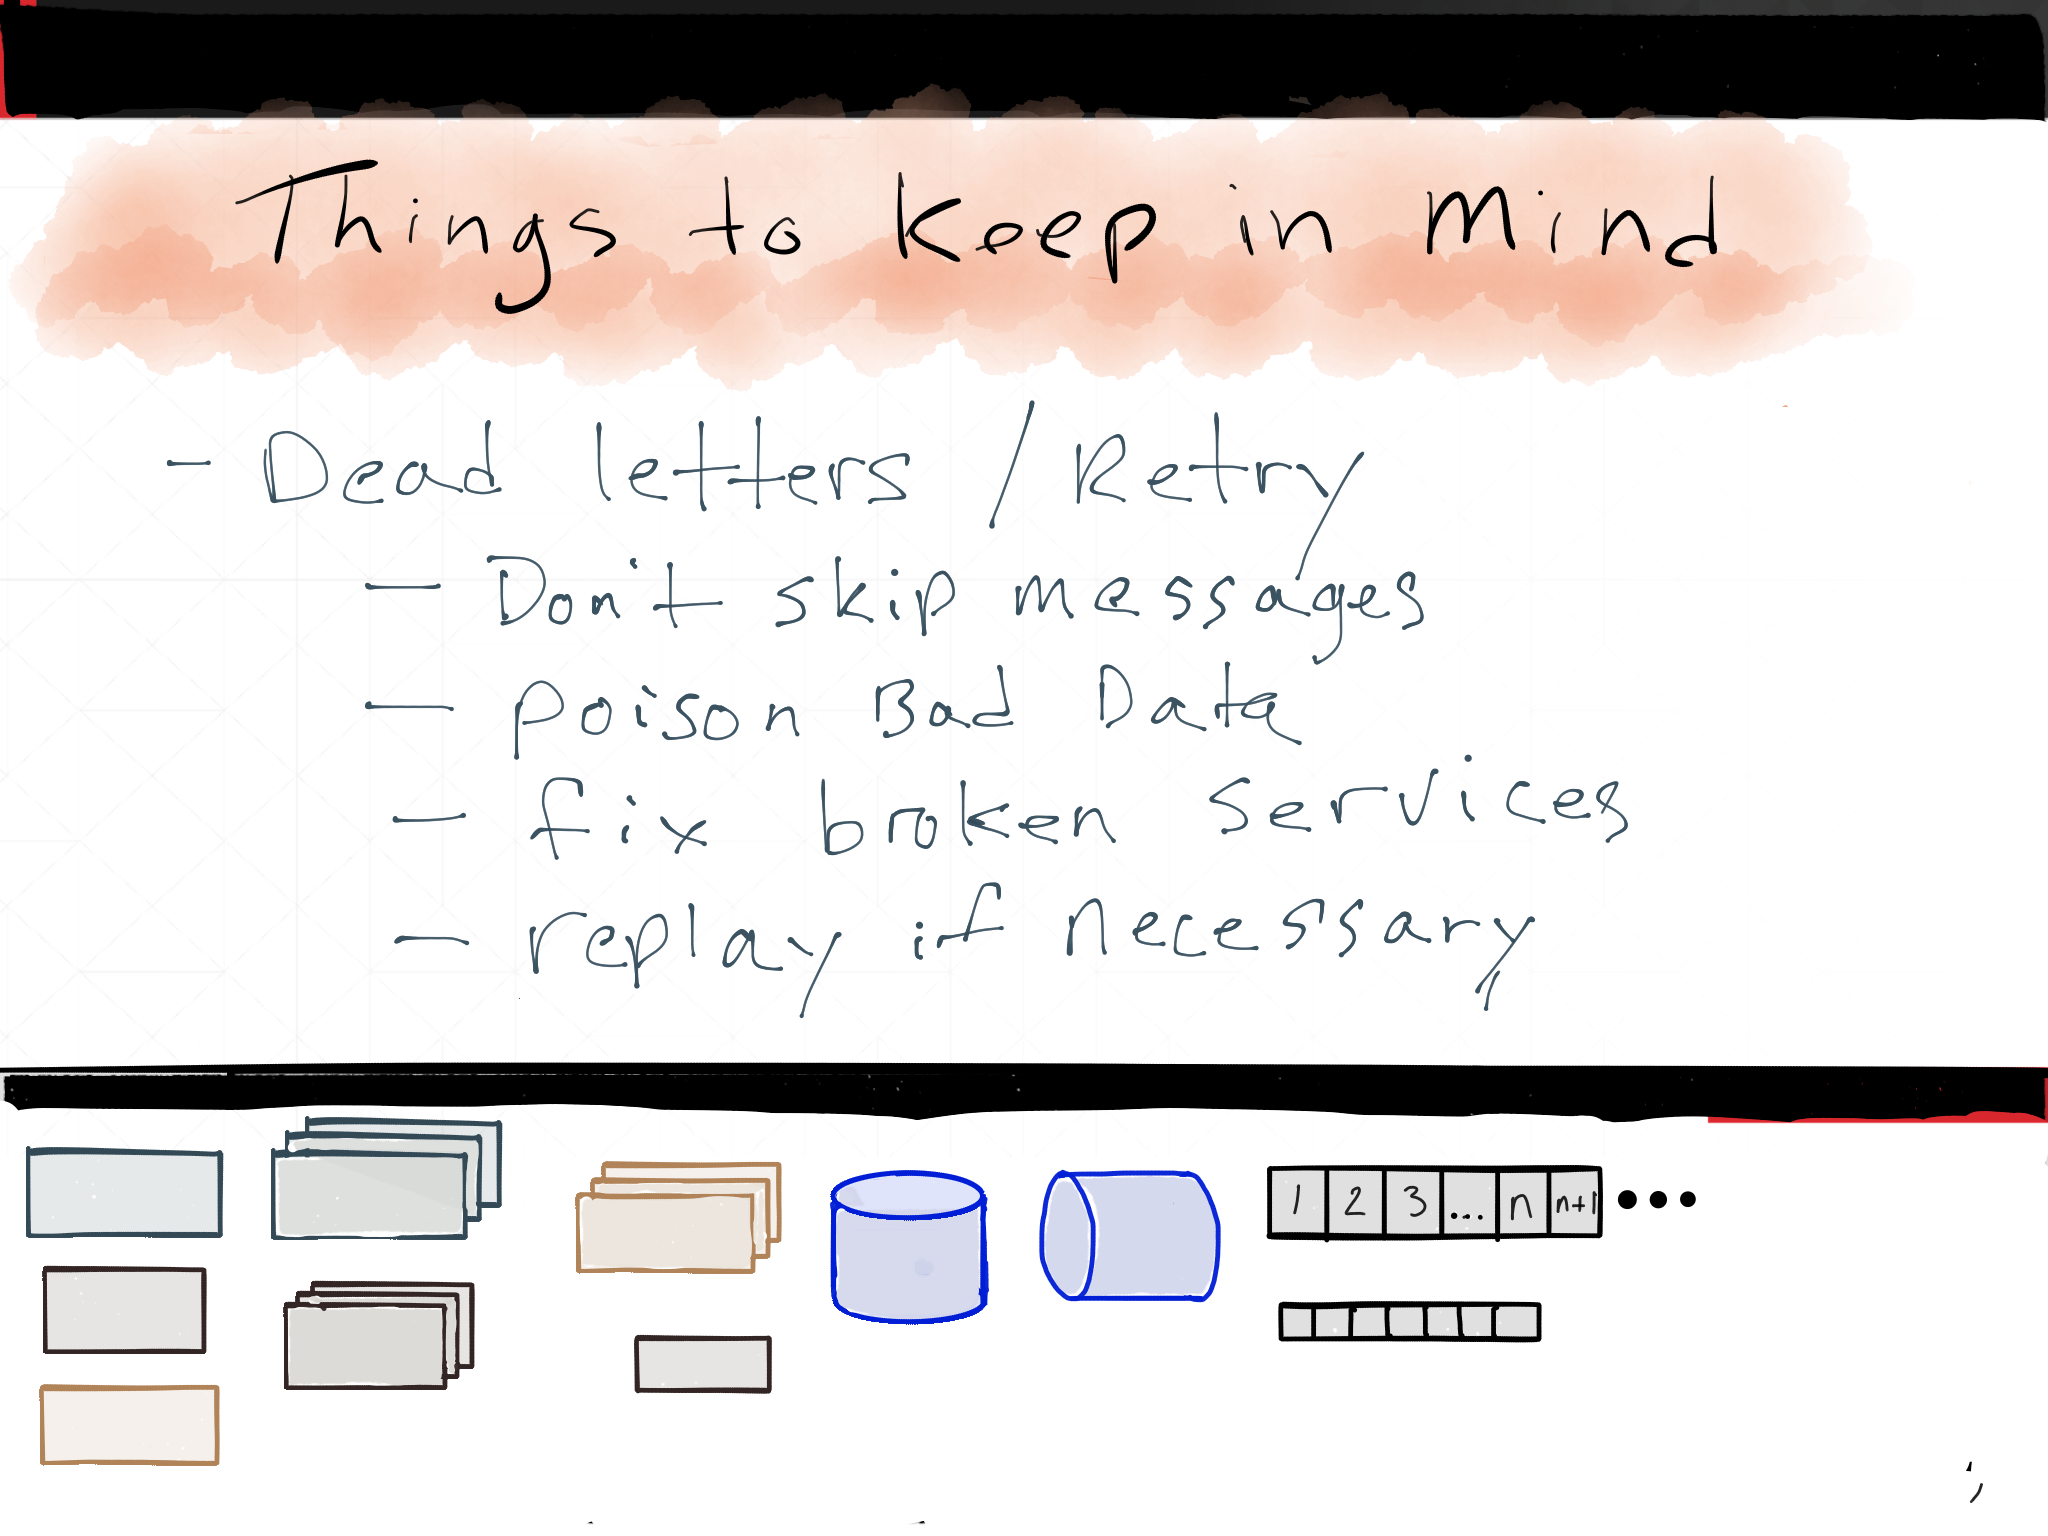 Things to Keep in Mind
- Dead letters / Retry
- Don't skip messages
- poison Bad Data
- fix broken services
- replay if necessary
1 2 3 ... n n+1 •••